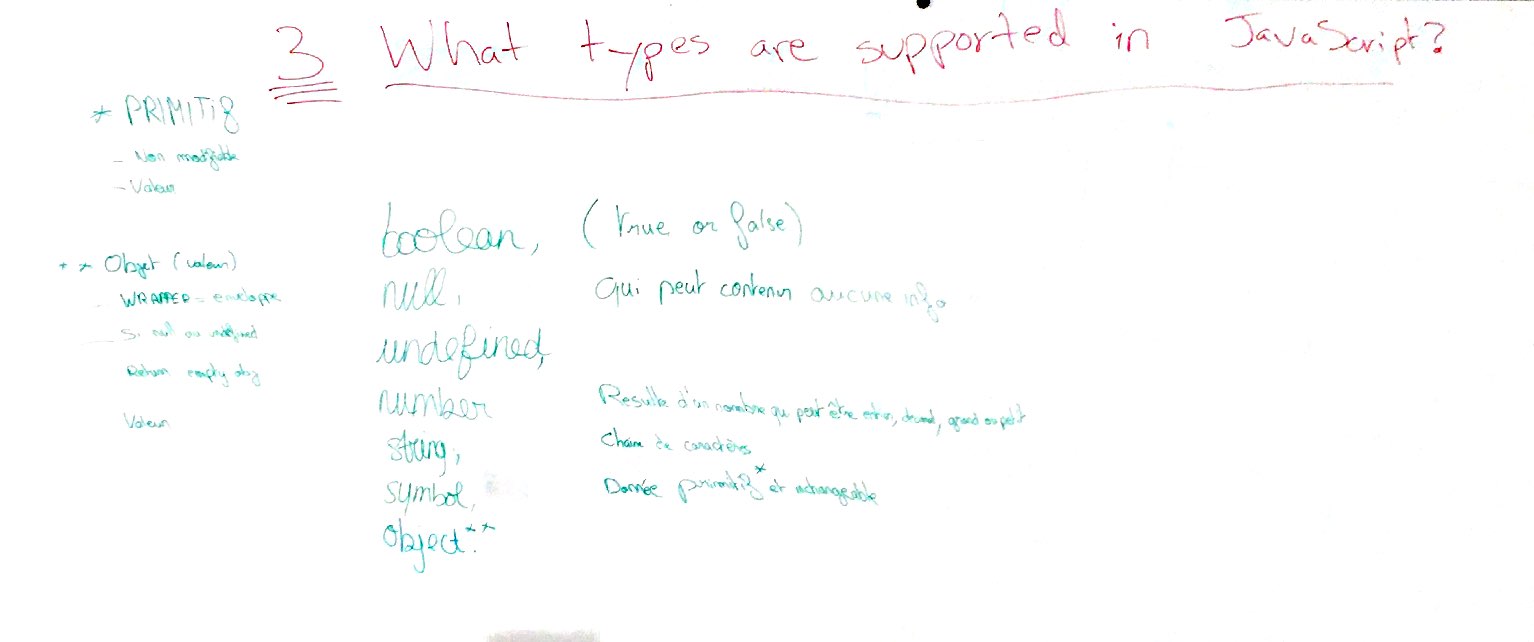 3 What types are supported in JavaScript?
* PRIMITif
- Non modifiable
- Valeur
** Objet (valeur)
- WRAPPER = enveloppe
- Si null ou undefined
Return empty obj
Valeur
boolean, (true or false)
null, Qui peut contenir aucune info
undefined,
number Resulte d'un nombre qui peut être entier, decimal, grand ou petit
string, Chaine de caractères
symbol, Donnée primitif* et inchangeable
object**.